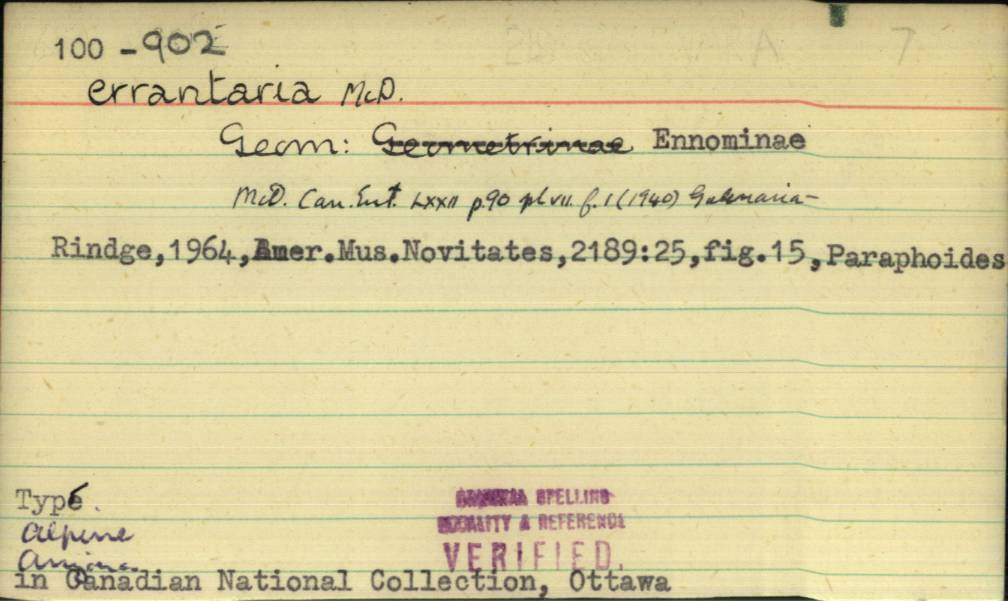 100 - 902
errantaria McD.
Geom: Geometrinae Ennominae
McD. Can. Ent. LXXII p.90 pl VII. f. 1 (1940)
Rindge,1964,Amer.Mus.Novitates,2189:25,fig.15,Paraphoides
Type.
Alpine
Arizona
in Canadian National Collection, Ottawa
SPELLING
LOCALITY & REFERENCE
VERIFIED.
A 7